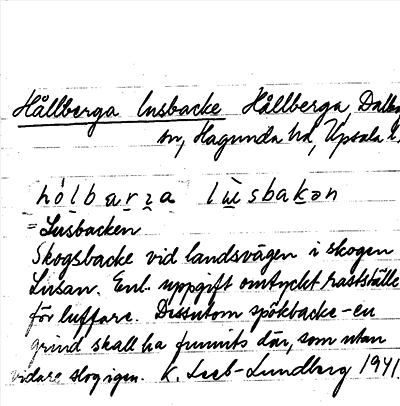 Hållberga lusbacke Hållberga, Dalby
sn, Hagunda hd, Upsala l.
hólbarza lùsbakən
= Lusbacken
Skogsbacke vid landsvägen i skogen
Lusan. Enl. uppgift omtyckt rastställe
för luffare. Dessutom spökbacke - en
grind skall ha funnits där, som utan
vidare slog igen. K. Leeb-Lundberg 1941.